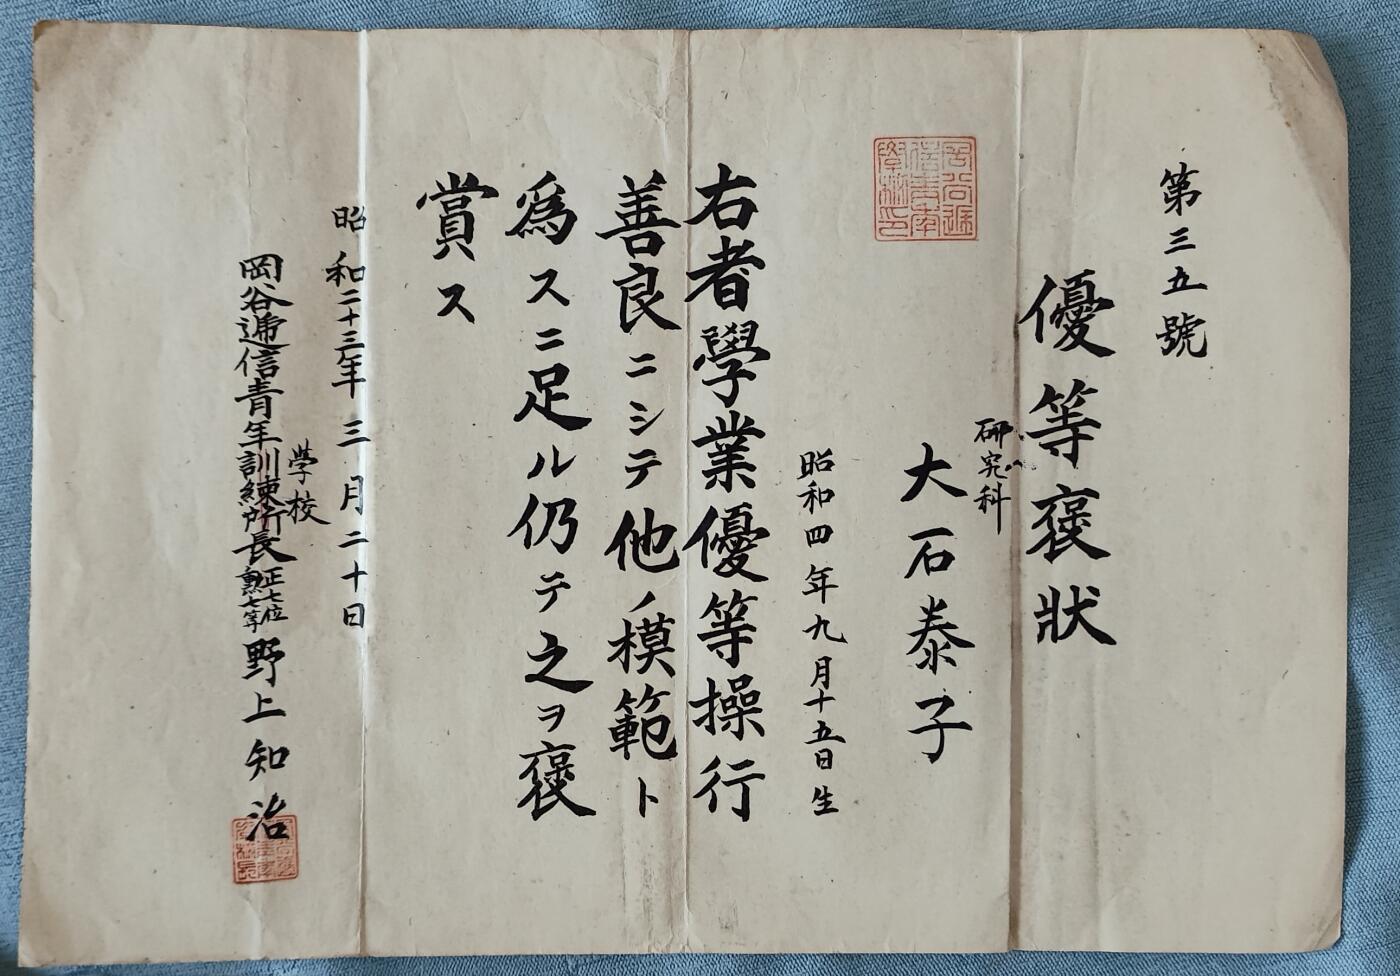 第三五號
優等褒狀
研究科
大石泰子
昭和四年九月十五日生
右者學業優等操行
善良ニシテ他ノ模範ト
爲スニ足ル仍テ之ヲ褒
賞ス
昭和二十三年三月二十日
學校
岡谷遞信青年訓練所長正七位勲七等野上知治